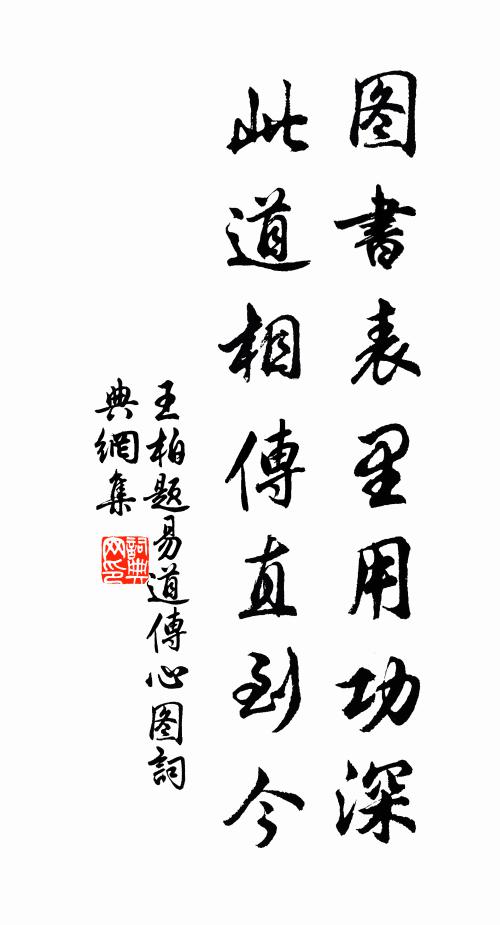 图書表里用功深
此道相傳直到今
王柏題易道傳心图詞
典網集
詞典
网印